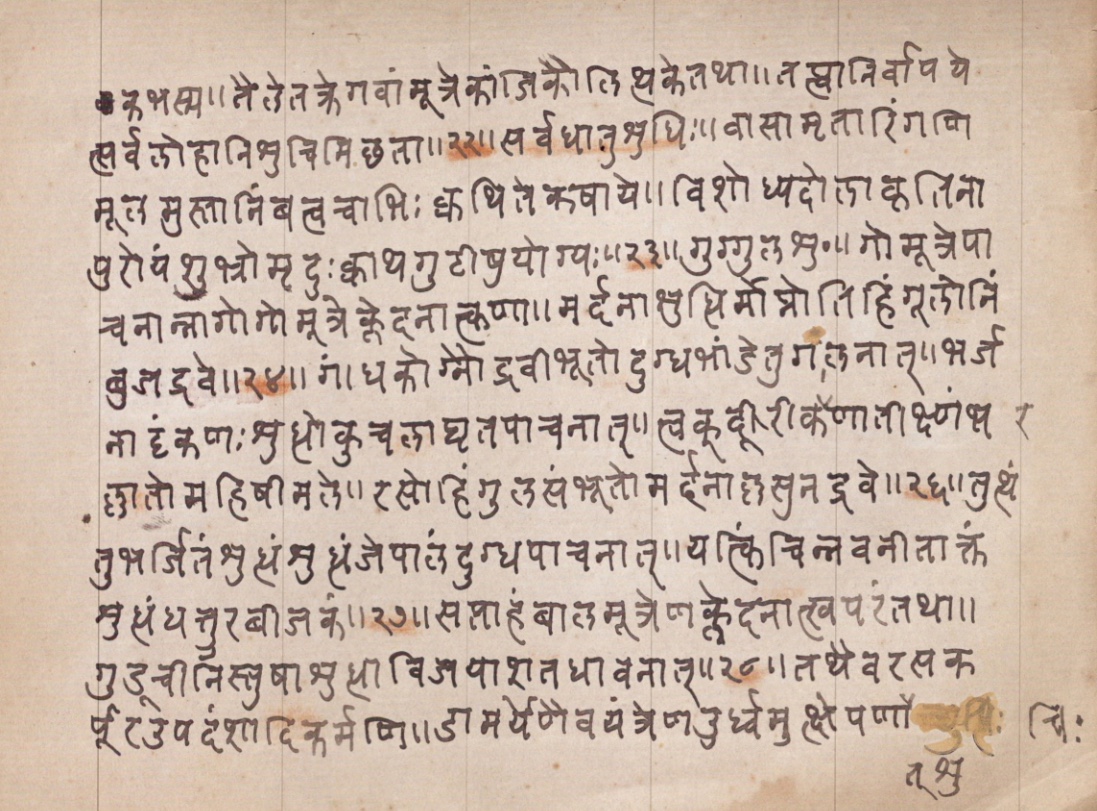 कभस्म॥तैलेतक्रेगवांमूत्रेकांजिकौलित्थकेतथा॥तप्त्वानिर्वापये
त्सर्वलोहानिशुचिमिछता॥२२॥सर्वधातुशुधिः॥वासामृतारिंगणि
मूलमुस्तानिंबत्वचाभिः क्वथितेकषाये॥विशोध्यदोलाकृतिना
पुरोयंशुभ्रोमृदुःक्वाथगुटीषुयोग्यः॥२३॥गुग्गुलशु॰॥गोमूत्रेपा
चनान्नागोगोमूत्रेक्लेदनात्कणा॥मर्दनाशुधिर्माप्नोतिहिंगूलोनिं
बुजद्रवे॥२४॥गंधकोग्नौद्रवीभूतोदुग्धभांडेतुगलनात्॥भर्ज
नाटंकणःशुधोकुचलाघृतपाचनात्॥
छातोमहिषीमले॥रसोहिंगुलसंभूतोमर्दनाछसुनद्रवे॥२६॥तुथं
तुभर्जितंशुधंशुधंजेपालंदुग्धपाचनात्॥यत्किंचिन्नवनीताक्तं
शुधंधत्तुरबीजकं॥२७॥सप्ताहंबालमूत्रेणक्लेदनात्खपरंतथा॥
गुडूचीनिस्तुषाशुधाविजपाशतधावनात्॥२८॥तथैवरसक
र्पूरउपदंशादिकर्मणि॥डामर्येणैवयंत्रेणतुर्ध्वमुत्क्षेपणाै धिः
त्शु